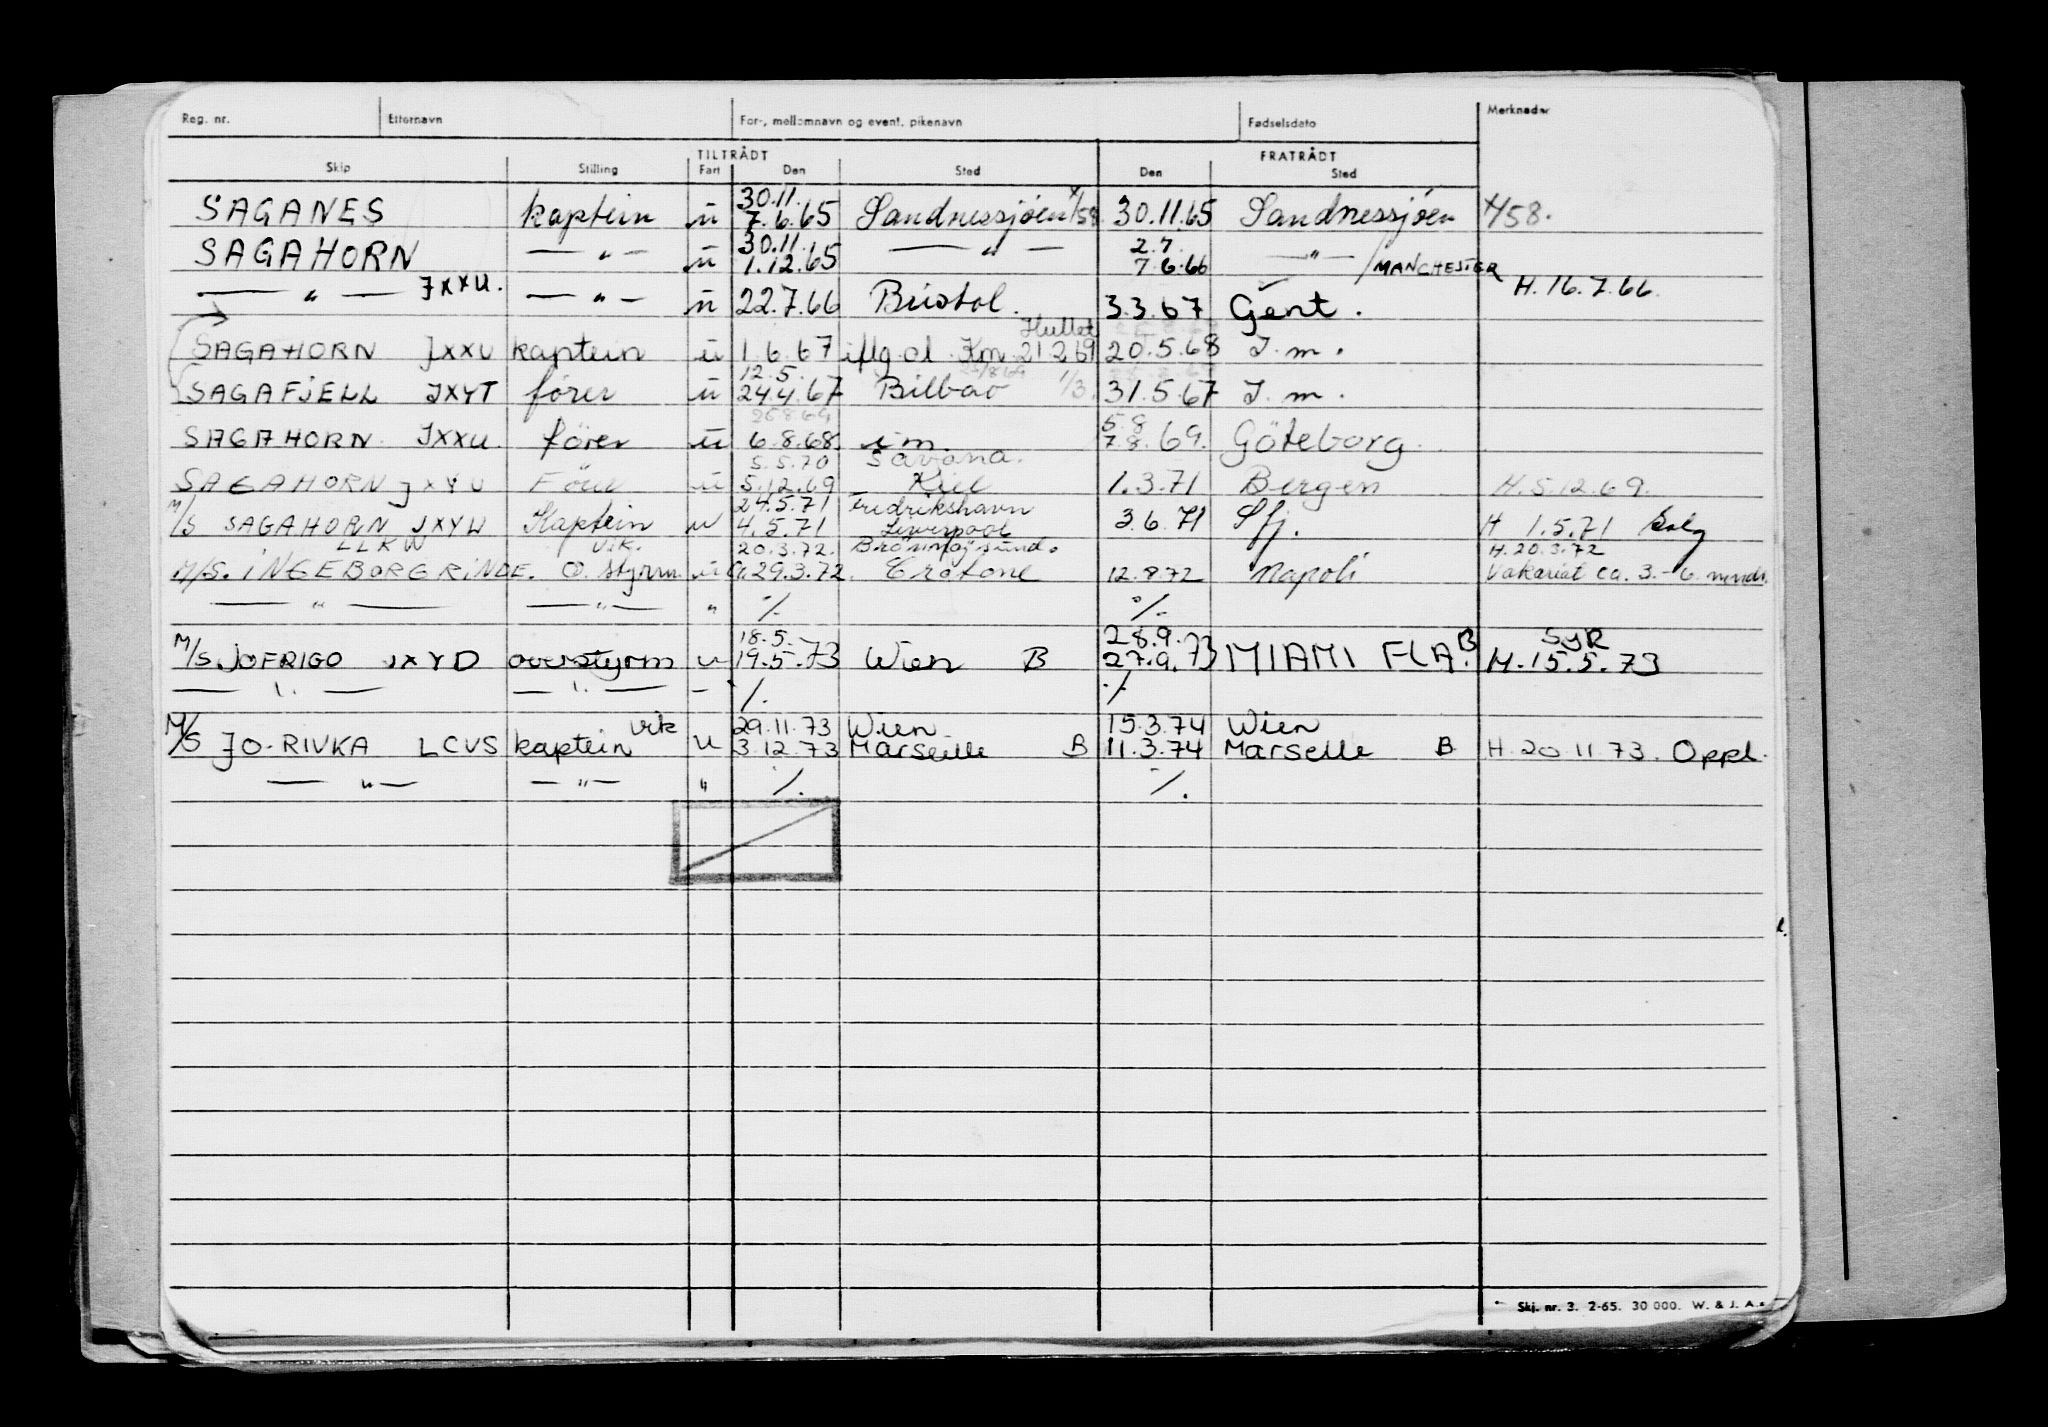 Reg. nr. Etternavn For-, mellomnavn og event. pikenavn Fødselsdato Merknader
TILTRÅDT FRATRÅDT
Skip Stilling Fart Den Sted Den Sted
30.11.
SAGANES kaptein u 7.6.65 Sandnessjøen 30.11.65 Sandnessjøen 4/58.
30.11. 2.7.
SAGAHORN — " — u 1.12.65 — " — 7.6.66 — " — / MANCHESTER
— " — JXXU. — " — u 22.7.66 Bristol. 3.3.67 Gent. H. 16.7.66.
SAGAHORN JXXU kaptein u 1.6.67 iflg. ol. Km 21 2 69 20.5.68 I. m.
12.5.
SAGAFJELL JXYT fører u 24.4.67 Bilbao 1/3. 31.5.67 I. m.
5.8
SAGAHORN. JXXU. fører u 6.8.68 i m 7.8.69. Göteborg.
5.5.70 Savona.
SAGAHORN JXYU u 5.12.69 Kiel 1.3.71 Bergen H. 5.12.69.
24.5.71 Fredrikshavn
M/S SAGAHORN JXYW Kaptein u 4.5.71 Liverpool 3.6.71 Sfj. H 1.5.71
LLKW vik. 20.3.72. Brønnøysund. H. 20.3.72
M/S. INGEBORG RINDE. O. styrm. u 29.3.72. Crotone 12.8.72 Napoli Vakariat ca. 3.-6. mndr.
— " — — " — " ./. ./.
18.5. 28.9. SYR
M/S JOFRIGO JXYD overstyrm u 19.5.73 Wien B 27.9.73 MIAMI FLA. B H. 15.5.73
— " — — " — - ./. ./.
vik 29.11.73 Wien 15.3.74 Wien
M/S JO-RIVKA LCVS kaptein u 3.12.73 Marseille B 11.3.74 Marselle B H. 20 11 73. Oppl.
— " — — " — " ./. ./.
Skj. nr. 3. 2-65. 30 000. W. & J. A.s